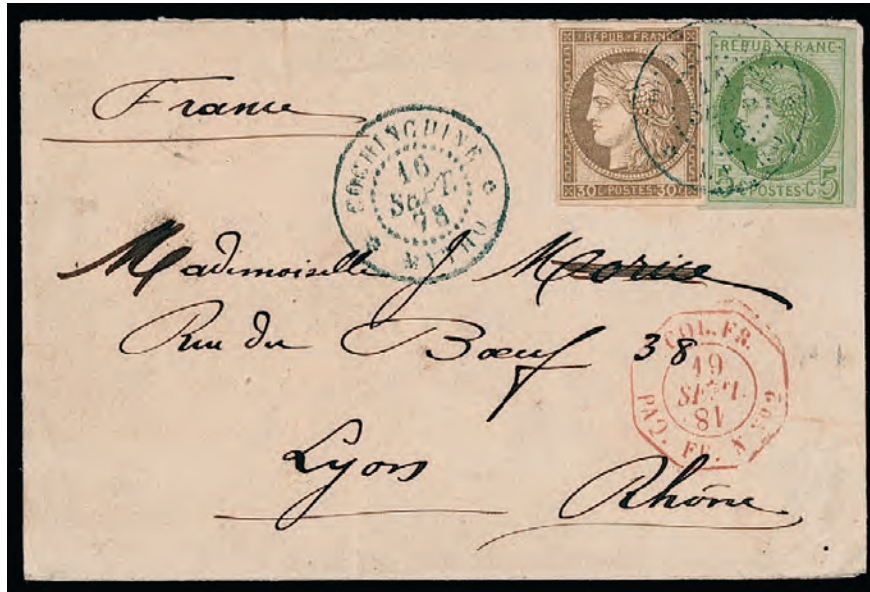 REPUB FRANC
30 C POSTES 30
REPUB FRANC
5 C POSTES C 5
France
COCHINCHINE
16
SEPT.
78
MYTHO
Mademoiselle J Morice
Rue du Bœuf 38
COL. FR.
19
SEPT.
81
PAQ. FR. N Nº2
Lyon
Rhône